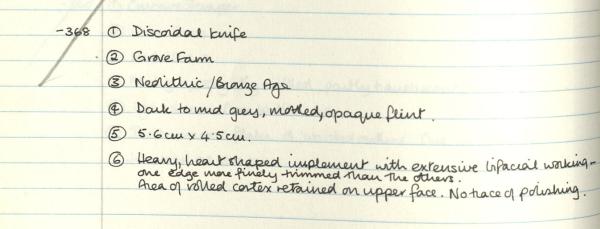 -368 ① Discoidal knife
② Grove Farm
③ Neolithic / Bronze Age
④ Dark to mid grey, mottled, opaque flint.
⑤ 5.6cm x 4.5cm.
⑥ Heavy, heart shaped implement with extensive bifacial working -
one edge more finely trimmed than the others.
Area of rolled cortex retained on upper face. No trace of polishing.